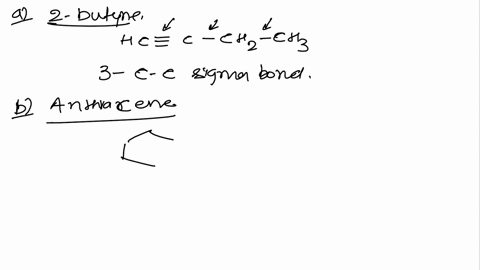 a) 2-butyne.
HC ≡ C - CH2 - CH3
3 - C-C sigma bond.
b) Anthracene